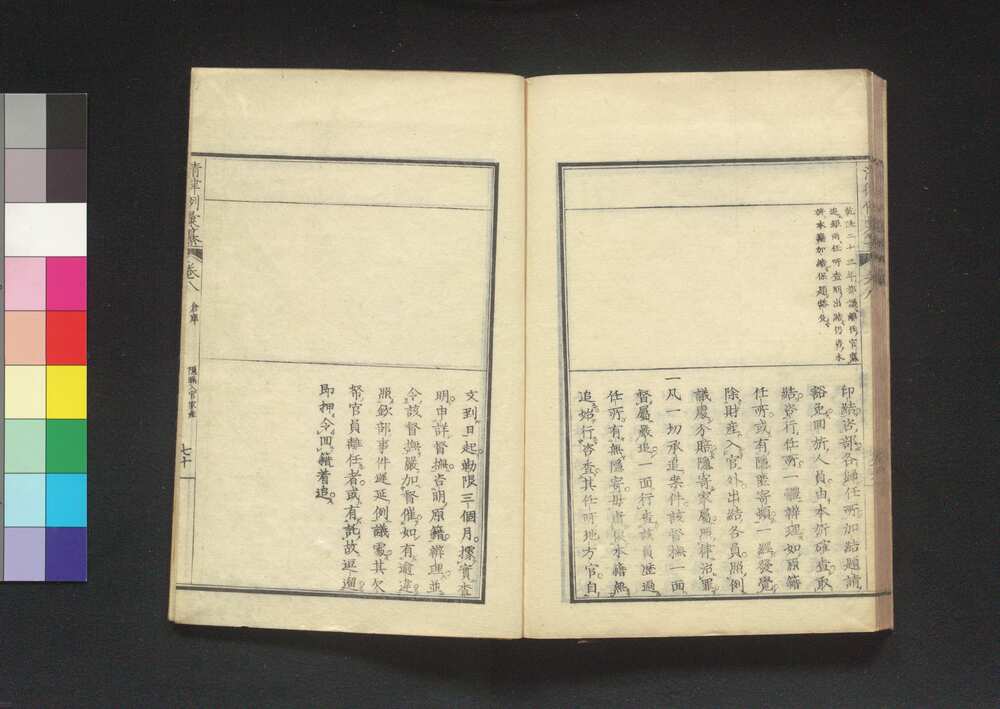 乾隆二十三年部議離任官虧
追銀兩任所查明出結仍咨本
籍加結保題豁免
印結咨部各歸任所加結題請
豁免間旂人員由本旂確查取
結咨行任所一體辦理如原籍
任所或有隱匿寄頓一經發覺
除財產入官外出結各員照例
議處分賠隱寄家屬照律治罪
一凡一切承追案件該督撫一面
督屬嚴追一面行查該員歷過
任所有無隱寄毋庸俟本籍無
追始行咨查其任所地方官自
清律例彙纂
卷八
倉庫
隱瞞入官家產
七十
文到日起勒限三個月據實查
明申詳督撫咨明原籍辦理並
令該督撫嚴加督催如有逾違
照欽部事件遲延例議處其欠
帑官員離任者或有託故逗遛
即押令回籍着追